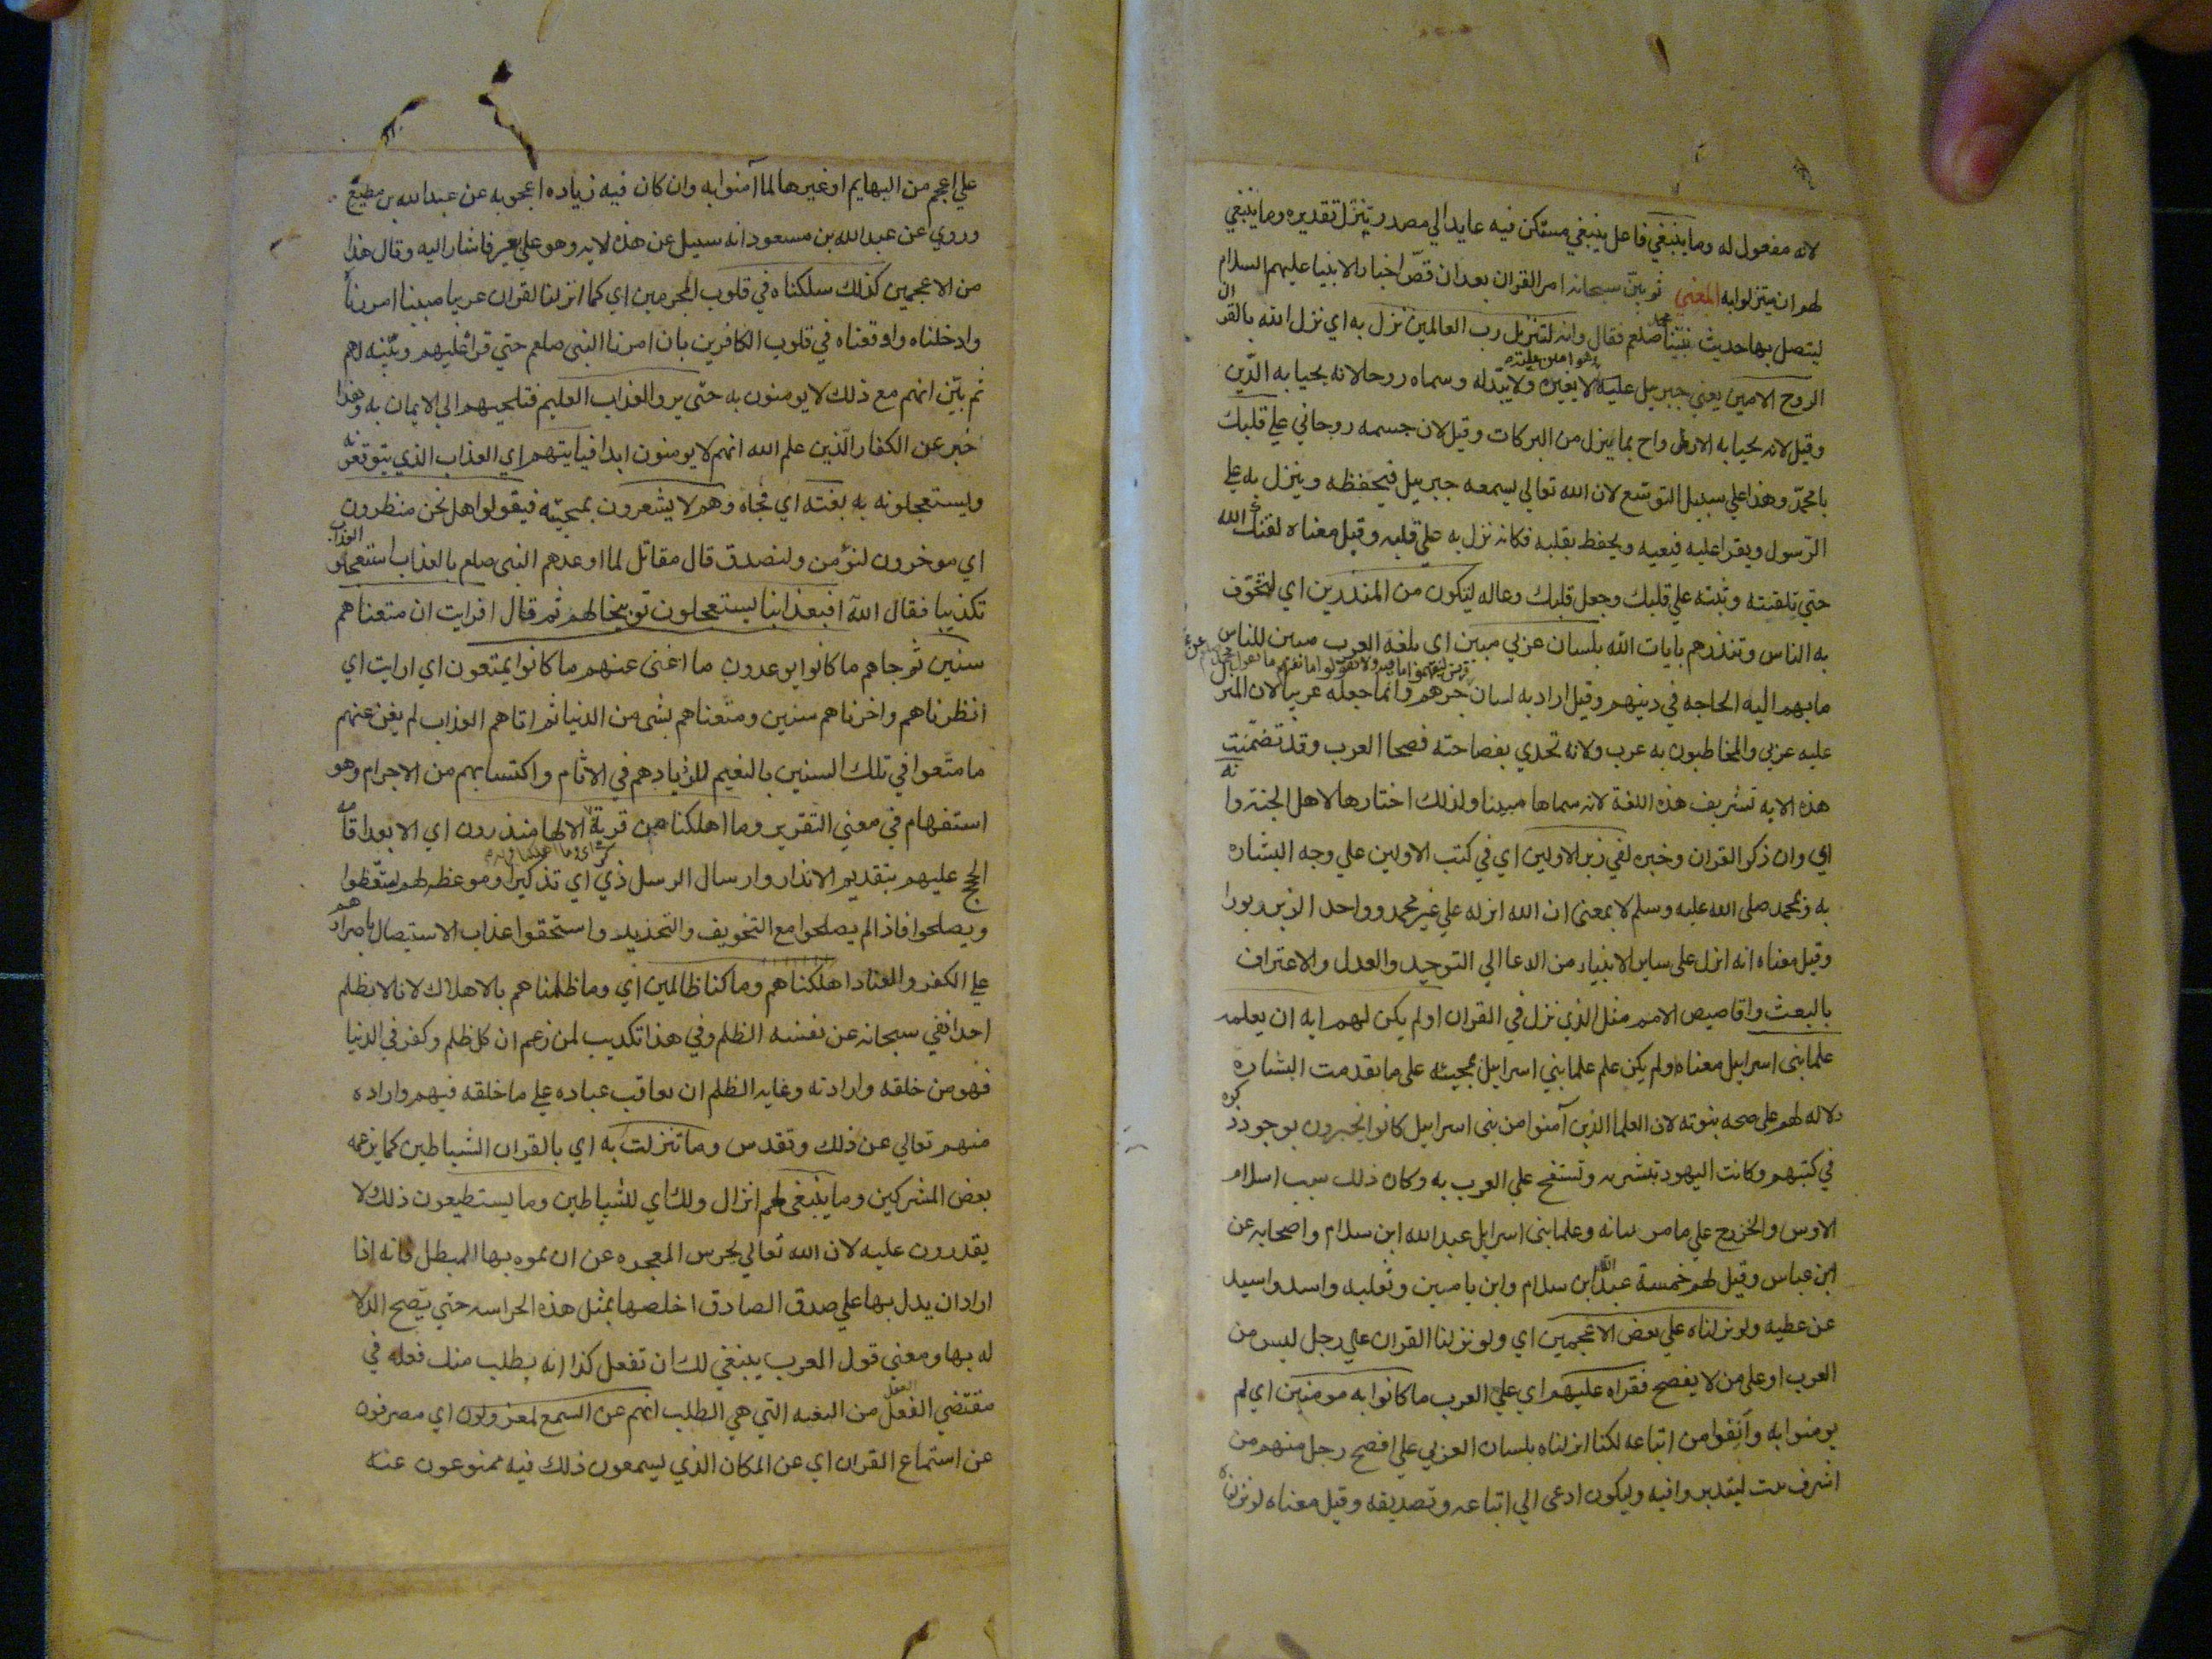 لانه مفعول له وما ينبغي فاعل ينبغي مستكن فيه عايد الي مصدر تنزل تقديره وما ينبغي
لهم ان يتنزلوا به المعني ثم بيّن سبحانه امر القران بعد ان قصّ اخبار الانبيا عليهم السلام
ليتصل بها حديث نبيّنا محمد صلعم فقال وانه لتنزيل رب العالمين نزل به اي نزل الله بالقران
الروح الامين يعني جبرييل عليه لا يغيره ولا يبدّله وسماه روحا لانه يحيا به الدّين
وقيل لانه يحيا به الارواح بما ينزل من البركات وقيل لان جسمه روحاني علي قلبك
يا محمّد وهذا علي سبيل التوسّع لان الله تعالي يسمعه جبرييل فيحفظه وينزل به علي
الرّسول ويقرا عليه فيعيه ويحفظ بقلبه فكانه نزل به علي قلبه وقيل معناه لقنك الله
حتي تلقنته وثبته علي قلبك وجعل قلبك وعاله لتكون من المنذرين اي لتخوّف
به الناس وتنذرهم بايات الله بلسان عربي مبين اي بلغه العرب مبين للناس
ما بهم اليه الحاجه في دينهم وقيل اراد به لسان جرهم وانما جعله عربيا لان المنزل
عليه عربي والمخاطبون به عرب ولانه تحدي بفصاحته فصحا العرب وقد تضمّنت
هذه الايه تشريف هذه اللغة لانه سماها مبينا ولذلك اختارها لاهل الجنه وانه
اي وان ذكر القران وخبره لفي زبر الاولين اي في كتب الاولين علي وجه البشاره
به وبمحمد صلى الله عليه وسلم لا بمعني ان الله انزله علي غير محمد وواحد الزبر زبور
وقيل معناه انه انزل علي ساير الانبياء من الدعا الي التوحيد والعدل والاعتراف
بالبعث واقاصيص الامم مثل الذي نزل في القران اولم يكن لهم ايه ان يعلمه
علما بني اسرايل معناه اولم يكن علم علما بني اسراييل بمجيئه علي ما تقدمت البشاره
دلاله لهم علي صحه نبوته لان العلما الذين آمنوا من بني اسراييل كانوا يخبرون بوجود ذكره
في كتبهم وكانت اليهود تبشر به وتستفتح علي العرب به وكان ذلك سبب اسلام
الاوس والخزرج علي ما مر بيانه وعلما بني اسرايل عبد الله ابن سلام واصحابه عن
ابن عباس وقيل لهم خمسة عبد الله ابن سلام وابن يامين وثعلبه واسد واسيد
عن عطيه ولو نزلناه علي بعض الاعجمين اي ولو نزلنا القران علي رجل ليس من
العرب او علي من لا يفصح فقراه عليهم اي علي العرب ما كانوا به مومنين اي لم
يومنوا به وآنفوا من اتباعه لكنا انزلناه بلسان العربي علي افصح رجل منهم من
اشرف بيت ليتدبروا فيه وليكون ادعى الي اتباعه وتصديقه وقيل معناه لو نزلناه
علي اعجم من البهايم او غيرها لما آمنوا به وان كان فيه زياده اعجوبه عن عبد الله بن مطيع
وروي عن عبد الله بن مسعود انه سييل عن هذه الايه وهو علي بعير فاشار اليه وقال هذا
من الاعجمين كذلك سلكناه في قلوب المجرمين اي كما انزلنا القران عربيا مبينا امررناه
وادخلناه واوقعناه في قلوب الكافرين بان امرنا النبي صلعم حتي قراه عليهم وبيّنه لهم
ثم بيّن انهم مع ذلك لا يومنون به حتّي يروا العذاب العليم فتلجيهم الي الايمان به وهذا
خبر عن الكفار الّذين علم الله انهم لا يومنون ابدا فياتيهم اي العذاب الذي يتوقعونه
ويستعجلونه به بغتة اي فجاه وهم لا يشعرون بمجيئه فيقولوا هل نحن منظرون
اي موخرون لنؤمن ولنصدق قال مقاتل لما اوعدهم النبي صلعم بالعذاب استعجلوا العذاب
تكذيبا فقال الله افبعذابنا يستعجلون توبيخا لهم ثم قال افرايت ان متعناهم
سنين ثم جاهم ما كانوا يوعدون ما اغني عنهم ما كانوا يمتعون اي ارايت اي
انظرناهم واخرناهم سنين ومتّعناهم بشي من الدنيا ثم اتاهم العذاب لم يغن عنهم
ما متّعوا في تلك السنين بالنعيم لازديادهم في الاثام واكتسابهم من الاجرام وهو
استفهام في معني التقرير وما اهلكنا من قرية الا لها منذرون اي الا بعد اقامه
الحجج عليهم بتقديم الانذار وارسال الرسل ذكري اي تذكيرا وموعظه لهم ليتّعظوا
ويصلحوا فاذا لم يصلحوا مع التخويف والتحذير واستحقوا عذاب الاستيصال باصرارهم
علي الكفر والعناد اهلكناهم وما كنا ظالمين اي وما ظلمناهم بالاهلاك لانا لا نظلم
احدا نفي سبحانه عن نفسه الظلم وفي هذا تكذيب لمن زعم ان كل ظلم وكفر في الدنيا
فهو من خلقه وارادته وغايه الظلم ان يعاقب عباده علي ما خلقه فيهم واراده
منهم تعالي عن ذلك وتقدس وما تنزلت به اي بالقران الشياطين كما يزعمه
بعض المشركين وما ينبغي لهم انزال ذلك اي للشياطين وما يستطيعون ذلك ولا
يقدرون عليه لان الله تعالي يحرس المعجزه عن ان يموه بها المبطل فانه اذا
اراد ان يدل بها علي صدق الصادق اخلصها بمثل هذه الحراسه حتي يصح الدلا
له بها ومعني قول العرب ينبغي لك ان تفعل كذا انه يطلب منك فعله في
مقتضي العقل من البغيه التي هي الطلب انهم عن السمع لمعزولون اي مصرفون
عن استماع القران اي عن المكان الذي يسمعون ذلك فيه ممنوعون عنه